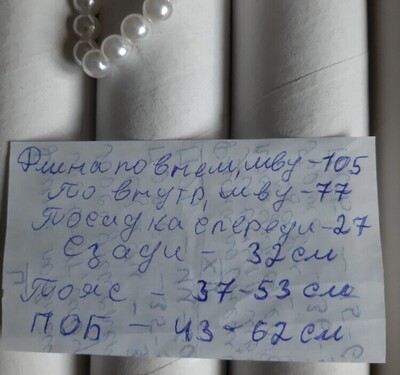 Длина по внеш, шву - 105
По внутр, шву - 77
Посадка спереди - 27
Сзади - 32 см
Пояс - 37-53 см
ПОБ - 43-62 см